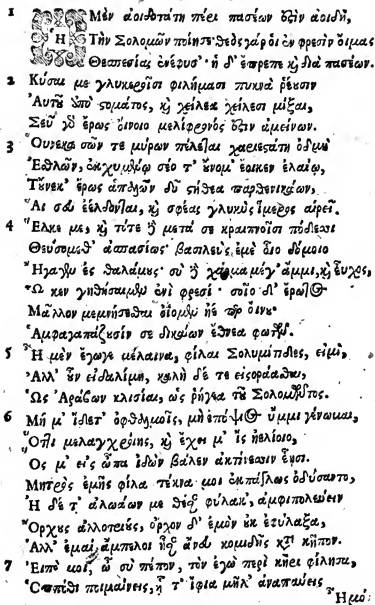 1 Μὲν ἀοιδοτάτη πέρι πασέων ἐστὶν ἀοιδὴ,
Ἡ Τὴν Σολομὼν ποίησε· θεὸς γάρ οἱ ἐν φρεσὶν οἴμας
Θεσπεσίας ἐνέφυσ᾽· ἡ δ᾽ ἔπρεπε καὶ διὰ πασέων.
2 Κύσαι με γλυκεροῖσι φιλήμασι πυκνὰ ῥέουσιν
Αὐτοῦ ὑπὸ στόματος, καὶ χείλεα χείλεσι μίξαι,
Σεῦ γὸ ἔρως οἴνοιο μελίφρονός ἐστιν ἀμείνων.
3 Οὕνεκα σῶν τε μύρων πέλεται χαριεστάτη ὀδμὴ
Ἐσθλῶν, ἐκχυμένῳ σέο τ᾽ οὔνομ᾽ ἔοικεν ἐλαίῳ,
Τοὔνεκ᾽ ἔρως ἁπαλῶν δῦ στήθεα παρθενικάων,
Αἵ σου ἐέλδονται, καὶ σφέας γλυκὺς ἵμερος αἱρεῖ.
4 Ἕλκε με, καὶ τότε μετά σε κραιπνοῖσι πόδεσσι
Θευσόμεθ᾽ ἀσπασίως· βασιλεὺς ἐμὲ δῖο δόμοιο
Ἤγαγεν ἐς θαλάμους· σὺ χάρμα μέγ᾽ ἄμμι, καὶ εὖχος,
Ὧ κεν γηθήσαιμεν ἐνὶ φρεσί· σοῖο δ᾽ ἔρωτος
Μᾶλλον μεμνήσεσθαι ὀΐομεν ἠὲ οἴνου·
Ἀμφαγαπάζουσίν σε δικαίων ἔθνεα φωτῶν.
5 Ἦ μὲν ἔγωγε μέλαινα, φίλαι Σολυμηίδες, εἰμὶ,
Ἀλλ᾽ οὖν εἰδαλίμη, καλὴ δέ τε εἰσοράασθαι,
Ὡς Ἀράβων κλισίαι, ὡς ῥήγεα τοῦ Σολομῶντος.
6 Μή μ᾽ ἴδετ᾽ ὀφθαλμοῖς, μὴ ἐπόψιος ὔμμι γένωμαι,
Ὅττι μελαγχροιής, καὶ ἔχει μ᾽ ἲς ἠελίοιο,
Ὅς μ᾽ εἰς ὦπα ἰδὼν βάλεν ἀκτίνεσσιν ἑῇσι.
Μητρὸς ἐμῆς φίλα τέκνα μοι ἐκπάγλως ὀδύσαντο,
Ἡ δέ τ᾽ ἀλωάων με θέσαν φύλακ᾽, ἀμφιπολεύειν
Ὄρχους ἀλλοτρίους, ὄρχον δ᾽ ἐμὸν οὐκ ἐφύλαξα,
Ἀλλ᾽ ἐμαὶ ἄμπελοι ἦσαν ἄνευ κομιδῆς κατὰ κῆπον.
7 Εἰπέ μοι, ὦ σὺ πέπον, τὸν ἐγὼ περὶ κῆρι φίλησα,
Ὅπποθι ποιμαίνεις, ἠ τ᾽ ἴφια μῆλ᾽ ἀναπαύεις
Ἦμος